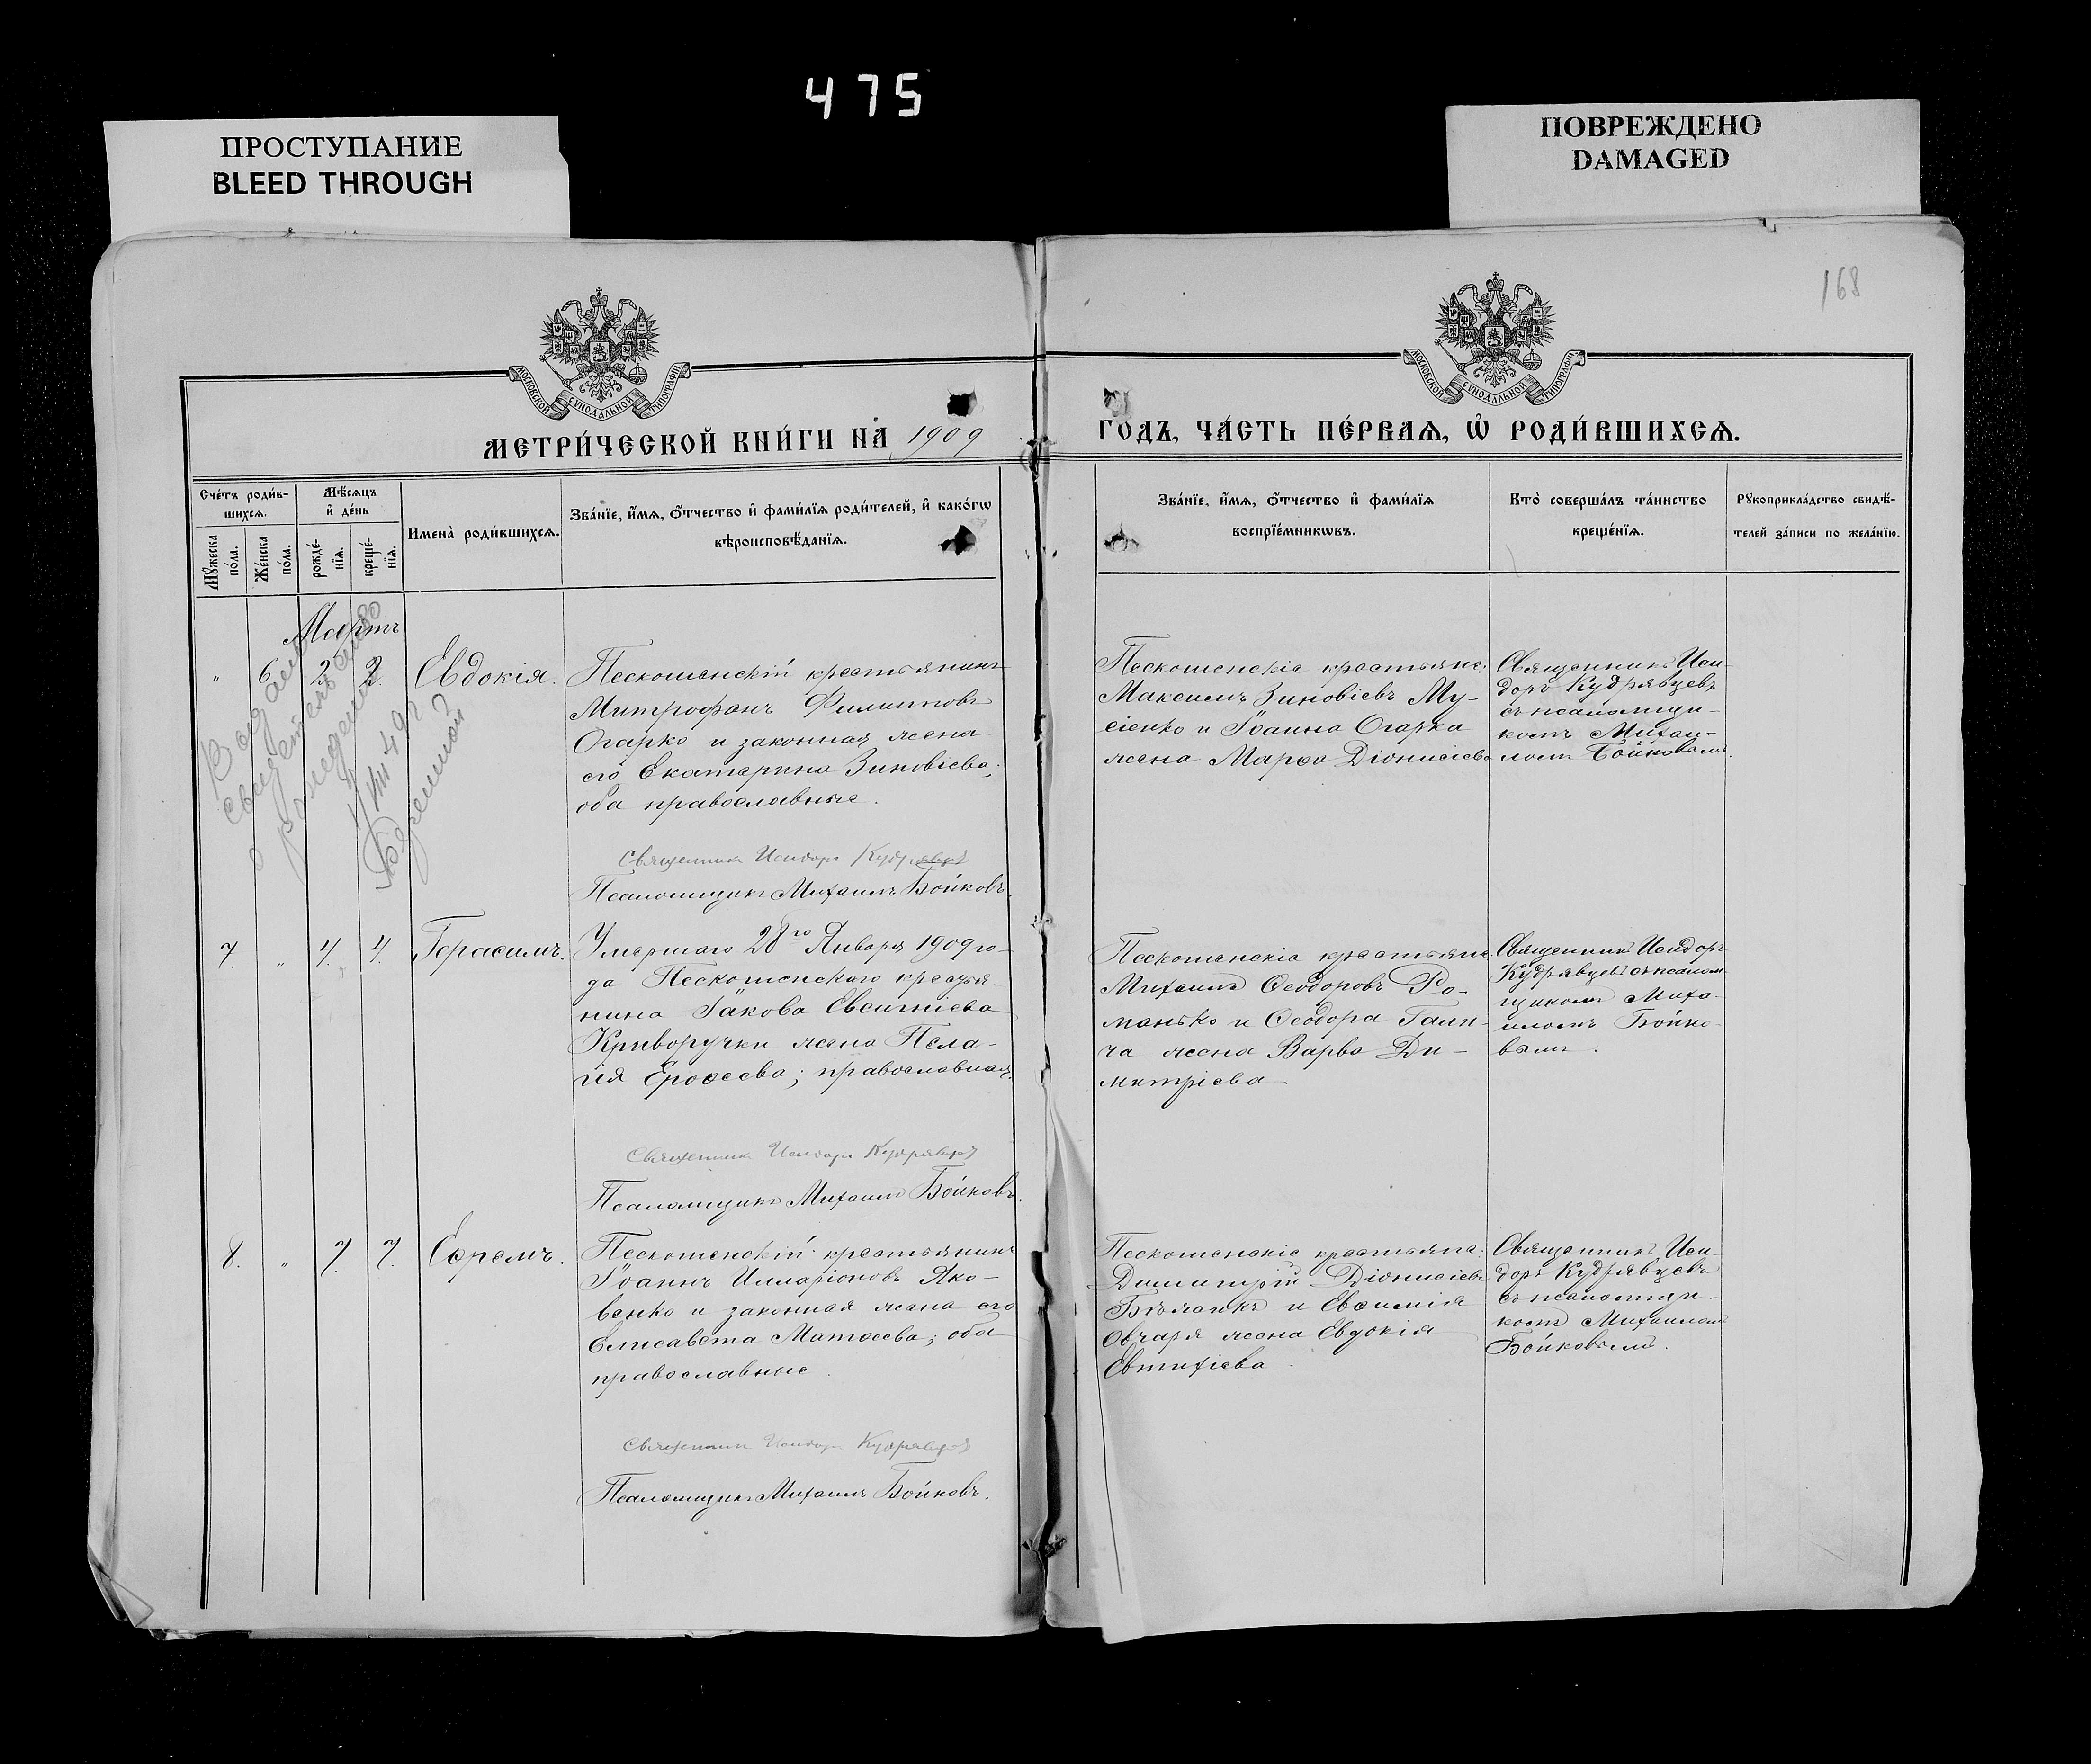 475
ПРОСТУПАНИЕ
BLEED THROUGH
ПОВРЕЖДЕНО
DAMAGED
168
МОСКОВСКОЙ СУНОДАЛЬНОЙ ТИПОГРАФІИ
МОСКОВСКОЙ СУНОДАЛЬНОЙ ТИПОГРАФІИ
МЕТРИ́ЧЕСКОЙ КНИ́ГИ НА 1909
ГОДЪ, ЧА́СТЬ ПЕ́РВАѦ, Ѡ РОДИ́ВШИХСѦ.
Сче́тъ роди́в-
шихсѧ.
Мꙋ́жеска по́ла.
Же́нска по́ла.
Мѣ́сѧцъ
и҆ де́нь
рожде́-
нїѧ.
креще́-
нїѧ.
Имена̀ роди́вшихсѧ.
Зва́нїе, и҆́мѧ, ѻ҆́тчество и҆ фами́лїѧ роди́телей, и҆ како́гѡ
вѣроисповѣ́данїѧ.
Зва́нїе, и҆́мѧ, ѻ҆́тчество и҆ фами́лїѧ
воспрїе́мникѡвъ.
Кто̀ соверша́лъ та́инство
креще́нїѧ.
Рꙋкоприкла́дство свидѣ́-
телей за́писи по жела́нїю.
Мартъ
" 6. 2. 2. Евдокія.
Пескошенскій крестьянинъ
Митрофанъ Филиповъ
Огарко и законная жена
его Екатерина Зиновіева,
оба православные.
Священникъ Исидоръ Кудрявцевъ
Псаломщикъ Михаилъ Бойковъ.
Пескошенскіе крестьяне:
Максимъ Зиновіевъ Му-
сіенко и Іоанна Огарка
жена Марѳа Діонисіева
Священникъ Иси-
доръ Кудрявцевъ
съ псаломщи-
комъ Михаи-
ломъ Бойковымъ.
свидетельство
о рождении
7. " 4. 4. Герасимъ.
Умершаго 28го Января 1909 го-
да Пескошенскаго крестья-
нина Іакова Евсигніева
Криворучки жена Пела-
гія Ероѳеева; православная.
Священникъ Исидоръ Кудрявцевъ
Псаломщикъ Михаилъ Бойковъ.
Пескошенскіе крестьяне:
Михаилъ Ѳеодоровъ Ро-
манько и Ѳеодора Гали-
ча жена Варва Ди-
митріева
Священникъ Исидоръ
Кудрявцевъ съ псалом-
щикомъ Миха-
иломъ Бойко-
вымъ.
8. " 7. 7. Еѳремъ.
Пескошенскій крестьянинъ
Іоаннъ Илларіоновъ Яко-
венко и законная жена его
Елисавета Матѳеева; оба
православные.
Священникъ Исидоръ Кудрявцевъ
Псаломщикъ Михаилъ Бойковъ.
Пескошенскіе крестьяне:
Димитрій Діонисіевъ
и Евѳимія
Овчаря жена Евдокія
Евтихіева.
Священникъ Иси-
доръ Кудрявцевъ
съ псаломщи-
комъ Михаиломъ
Бойковымъ.